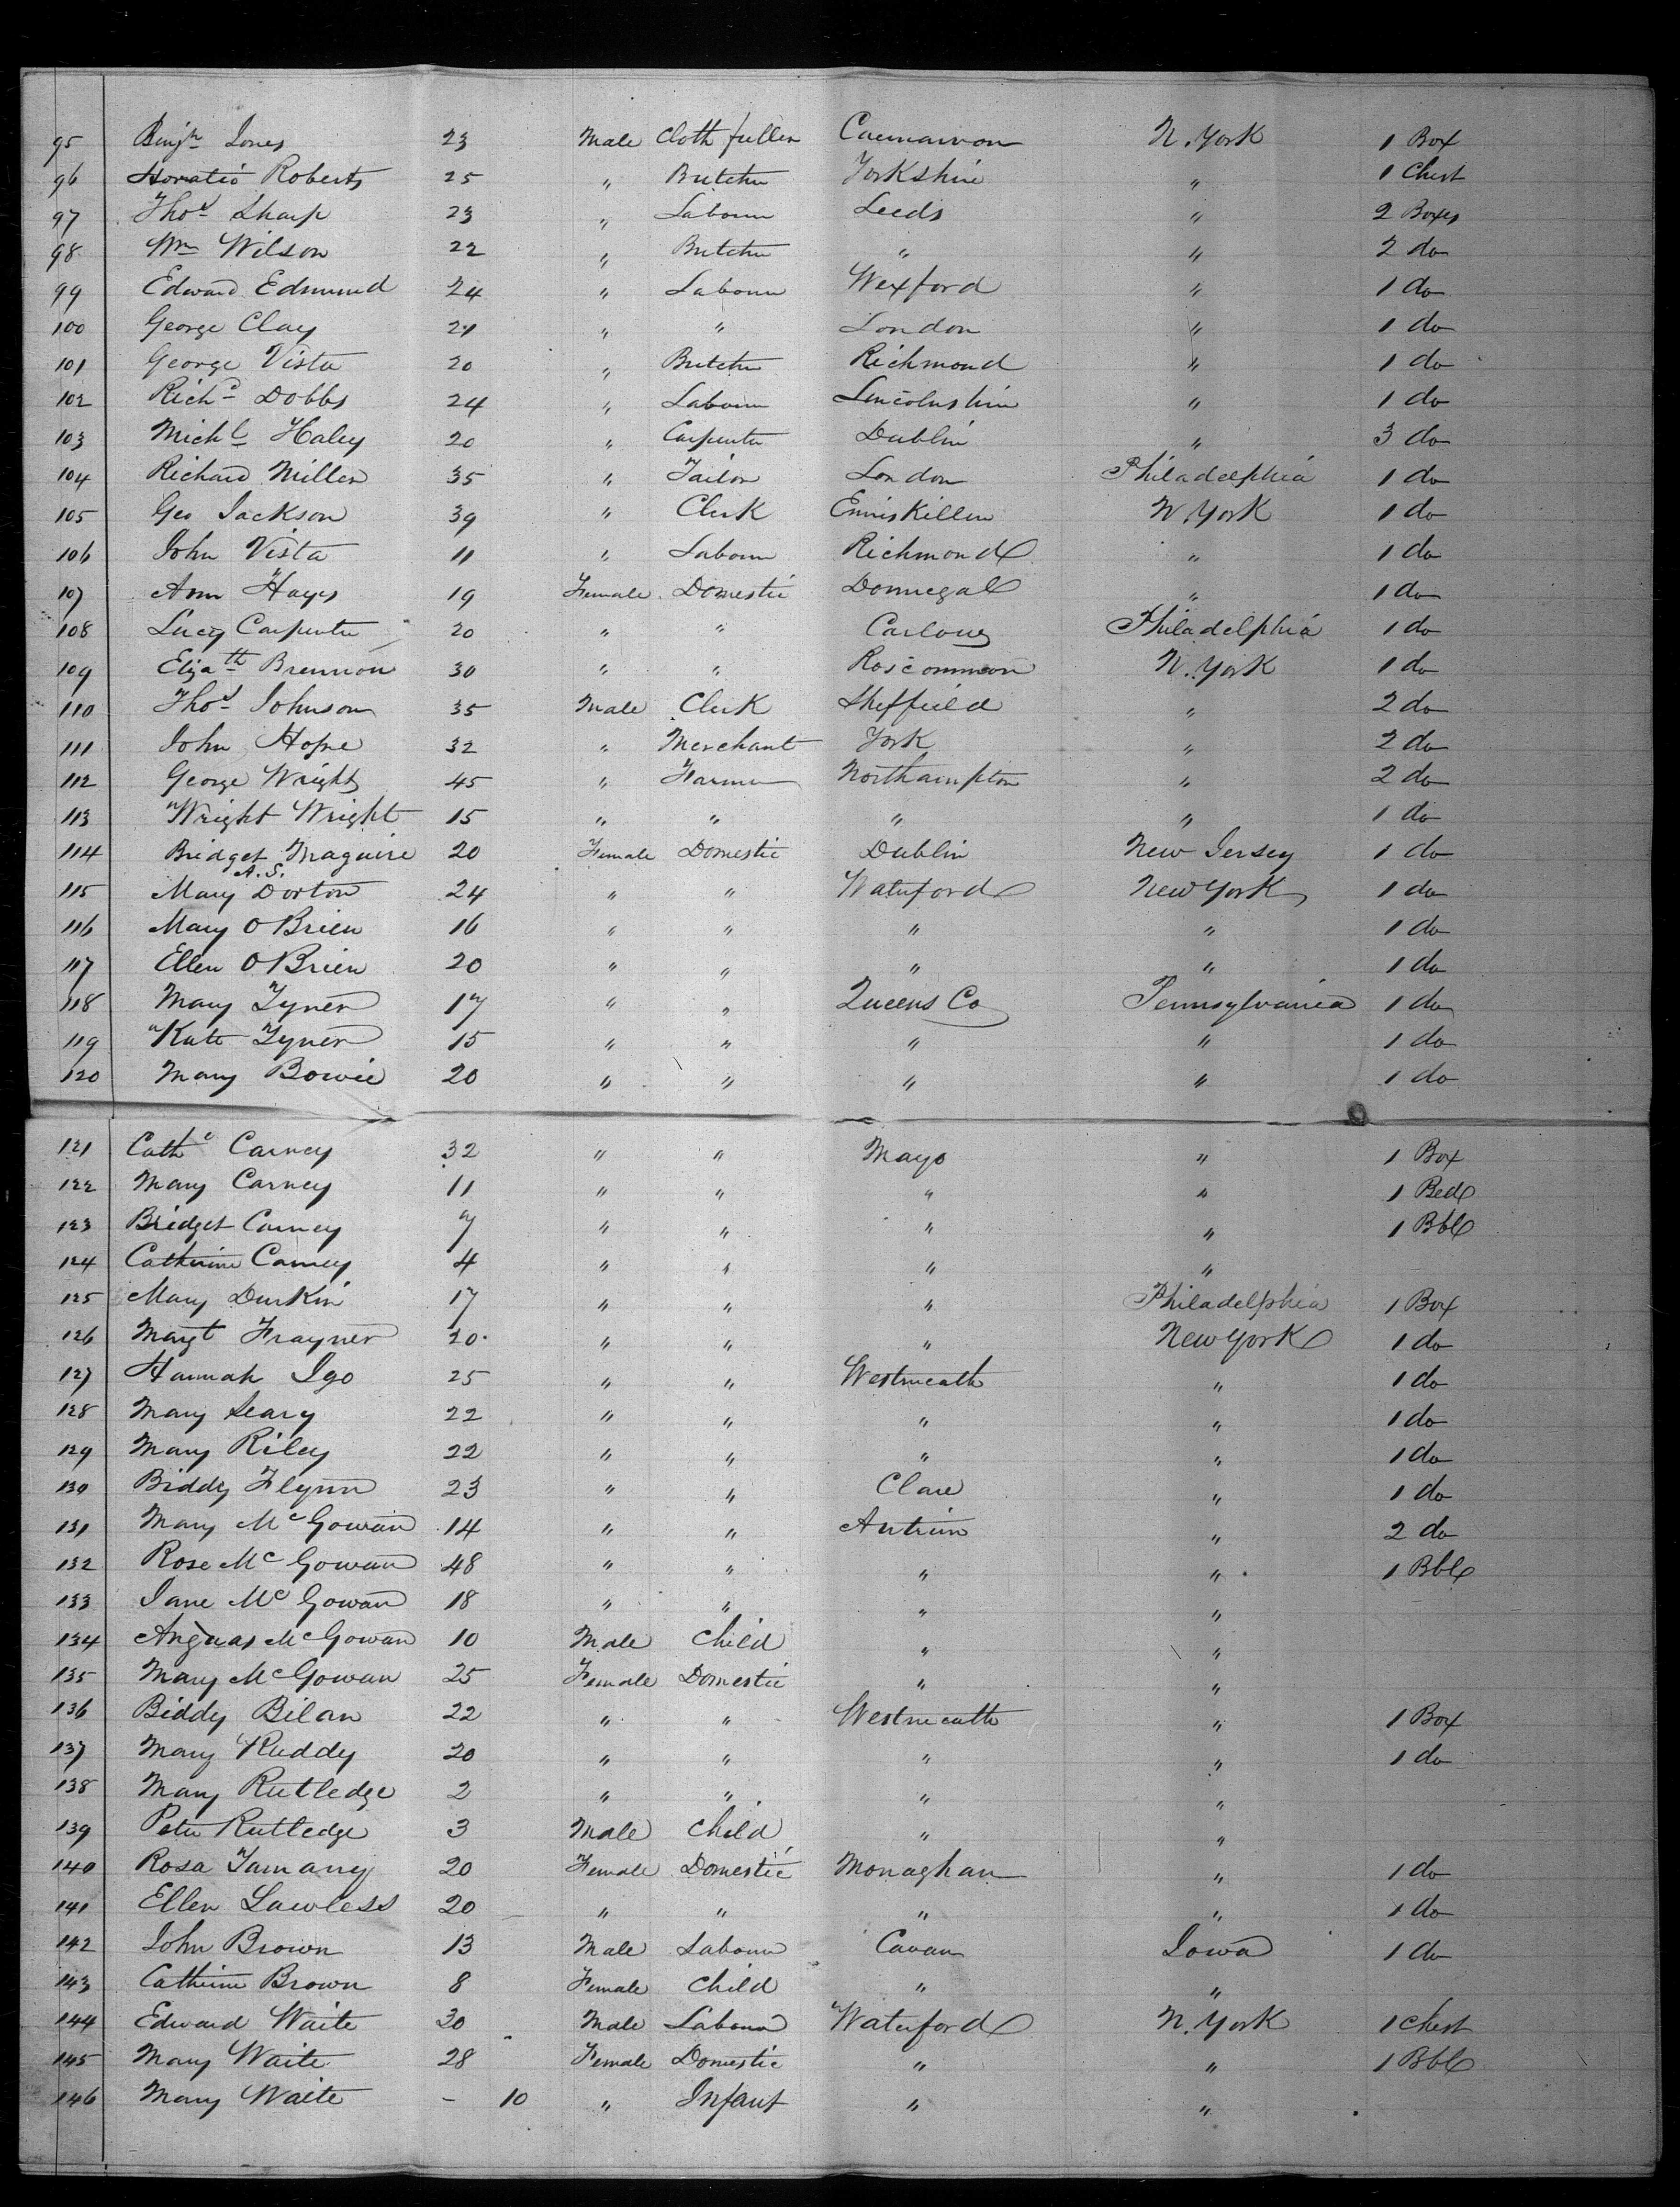 95 Benjn Jones 23 Male Cloth fuller Caernarvon N. York 1 Box
96 Horatio Roberts 25 " Butcher Yorkshire " 1 Chest
97 Thos Sharp 23 " Labourer Leeds " 2 Boxes
98 Wm Wilson 22 " Butcher " " 2 do
99 Edward Edmund 24 " Labourer Wexford " 1 do
100 George Clay 21 " " London " 1 do
101 George Vista 20 " Butcher Richmond " 1 do
102 Richd Dobbs 24 " Labourer Lincolnshire " 1 do
103 Michl Haley 20 " Carpenter Dublin " 3 do
104 Richard Miller 35 " Tailor London Philadelphia 1 do
105 Geo Jackson 39 " Clerk Enniskillen N. York 1 do
106 John Vista 11 " Labourer Richmond " 1 do
107 Ann Hays 19 Female Domestic Donnegal " 1 do
108 Lucy Carpenter 20 " " Carlow Philadelphia 1 do
109 Elizath Brennon 30 " " Roscommon N. York 1 do
110 Thos Johnson 35 Male Clerk Sheffield " 2 do
111 John Hope 32 " Merchant York " 2 do
112 George Wright 45 " Farmer Northampton " 2 do
113 Wright Wright 15 " " " " 1 do
114 Bridget Maguire 20 Female Domestic Dublin New Jersey 1 do
A.S.
115 Mary Dorton 24 " " Waterford New York 1 do
116 Mary O Brien 16 " " " " 1 do
117 Ellen O Brien 20 " " " " 1 do
118 Mary Tyner 17 " " Queens Co Pennsylvania 1 do
119 Kate Tyner 15 " " " " 1 do
120 Mary Bowie 20 " " " " 1 do
121 Cathe Carney 32 " " Mayo " 1 Box
122 Mary Carney 11 " " " " 1 Bed
123 Bridget Carney 7 " " " " 1 Bbl
124 Catherine Carney 4 " " " "
125 Mary Durkin 17 " " " Philadelphia 1 Box
126 Margt Frayner 20 " " " New York 1 do
127 Hannah Igo 25 " " Westmeath " 1 do
128 Mary Leary 22 " " " " 1 do
129 Mary Riley 22 " " " " 1 do
130 Biddy Flynn 23 " " Clare " 1 do
131 Mary McGowan 14 " " Antrim " 2 do
132 Rose McGowan 48 " " " " 1 Bbl
133 Jane McGowan 18 " " " "
134 Anguas McGowan 10 Male Child " "
135 Mary McGowan 25 Female Domestic " "
136 Biddy Bilan 22 " " Westmeath " 1 Box
137 Mary Ruddy 20 " " " " 1 do
138 Mary Rutledge 2 " " " "
139 Peter Rutledge 3 Male Child " "
140 Rosa Tamany 20 Female Domestic Monaghan " 1 do
141 Ellen Lawless 20 " " " " 1 do
142 John Brown 13 Male Labourer Cavan Iowa 1 do
143 Catherine Brown 8 Female Child " "
144 Edward Waite 30 Male Labourer Waterford N. York 1 Chest
145 Mary Waite 28 Female Domestic " " 1 Bbl
146 Mary Waite - 10 " Infant " "